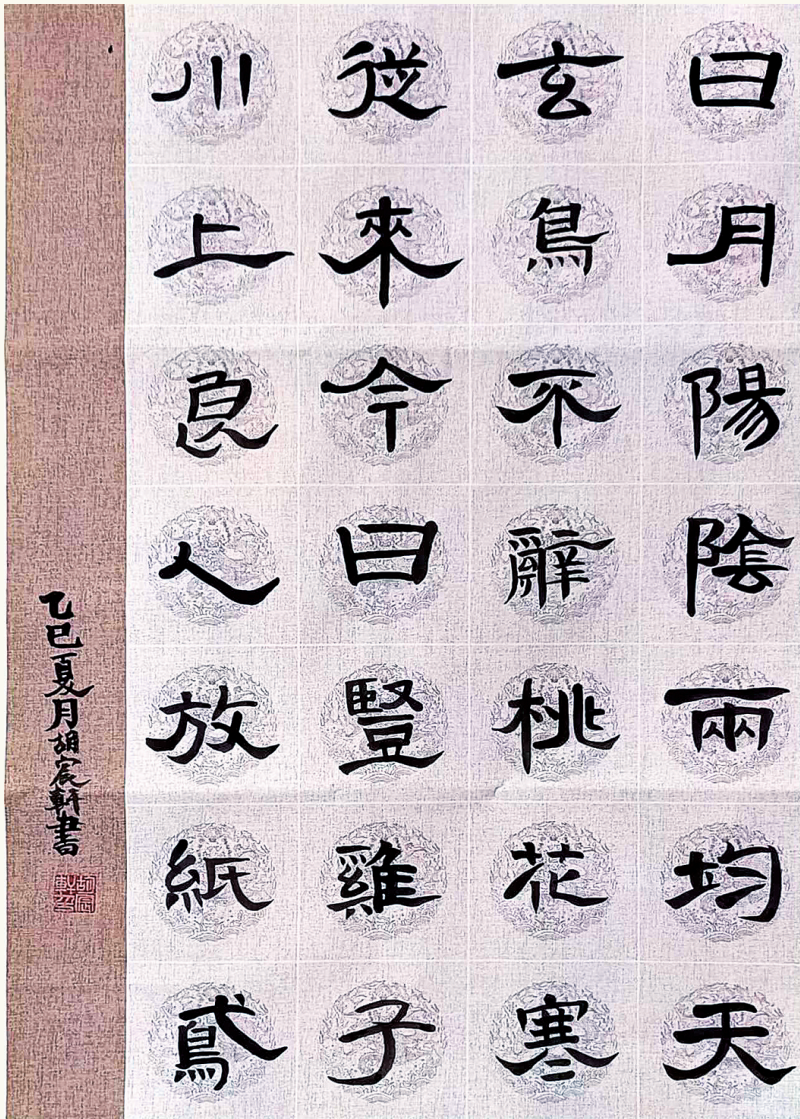 日月陽陰兩均天
玄鳥不辭桃花寒
從來今日豎雞子
川上良人放紙鳶
乙巳夏月胡宸軒書